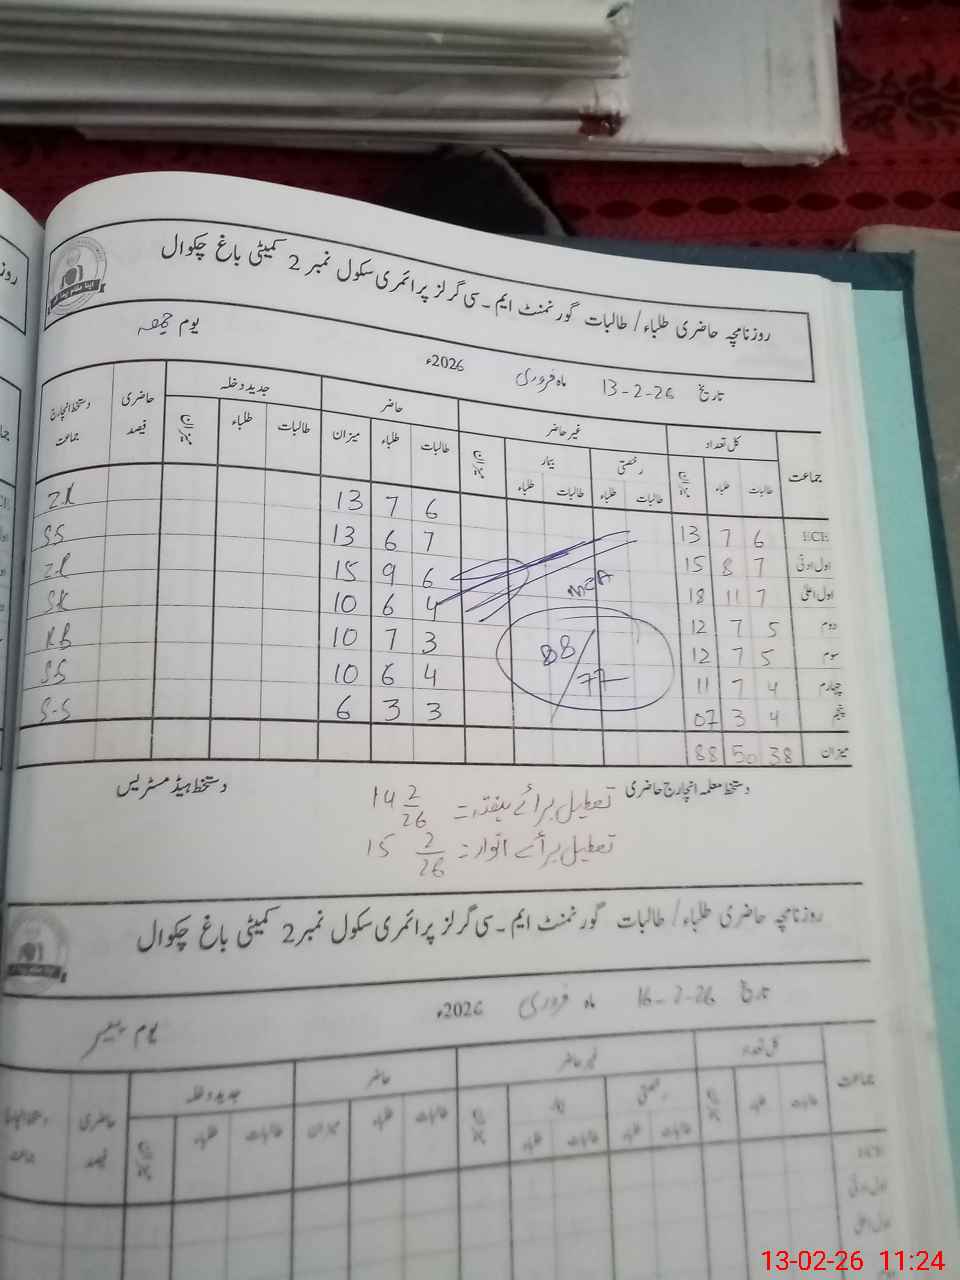 روزنامچہ حاضری طلباء / طالبات گورنمنٹ ایم۔سی گرلز پرائمری سکول نمبر 2 کمیٹی باغ چکوال
تاریخ 13-2-26 ماہ فروری 2026ء یوم جمعہ
جماعت کل تعداد غیر حاضر حاضر جدید داخلہ حاضری فیصد دستخط انچارج جماعت
رخصتی بیمار
طالبات طلباء میزان طالبات طلباء طالبات طلباء میزان طالبات طلباء میزان طالبات طلباء میزان
ECE 6 7 13 6 7 13 Z.K
اول ادنیٰ 7 8 15 7 6 13 S.S
اول اعلیٰ 7 11 18 6 9 15
دوم 5 7 12 4 6 10 S.K
سوم 5 7 12 3 7 10 R.B
چہارم 4 7 11 4 6 10 S.S
پنجم 4 3 07 3 3 6 S-S
میزان 38 50 88
MEA
88/77
دستخط معلمہ انچارج حاضری دستخط ہیڈ مسٹریس
تعطیل برائے ہفتہ:- 14 2/26
تعطیل برائے اتوار:- 15 2/26
روزنامچہ حاضری طلباء / طالبات گورنمنٹ ایم۔سی گرلز پرائمری سکول نمبر 2 کمیٹی باغ چکوال
تاریخ 16-2-26 ماہ فروری 2026ء یوم پیر
جماعت کل تعداد غیر حاضر حاضر جدید داخلہ حاضری فیصد
رخصتی بیمار
طالبات طلباء میزان طالبات طلباء طالبات طلباء میزان طالبات طلباء میزان طالبات طلباء میزان
ECE
اول ادنیٰ
اول اعلیٰ
13-02-26 11:24